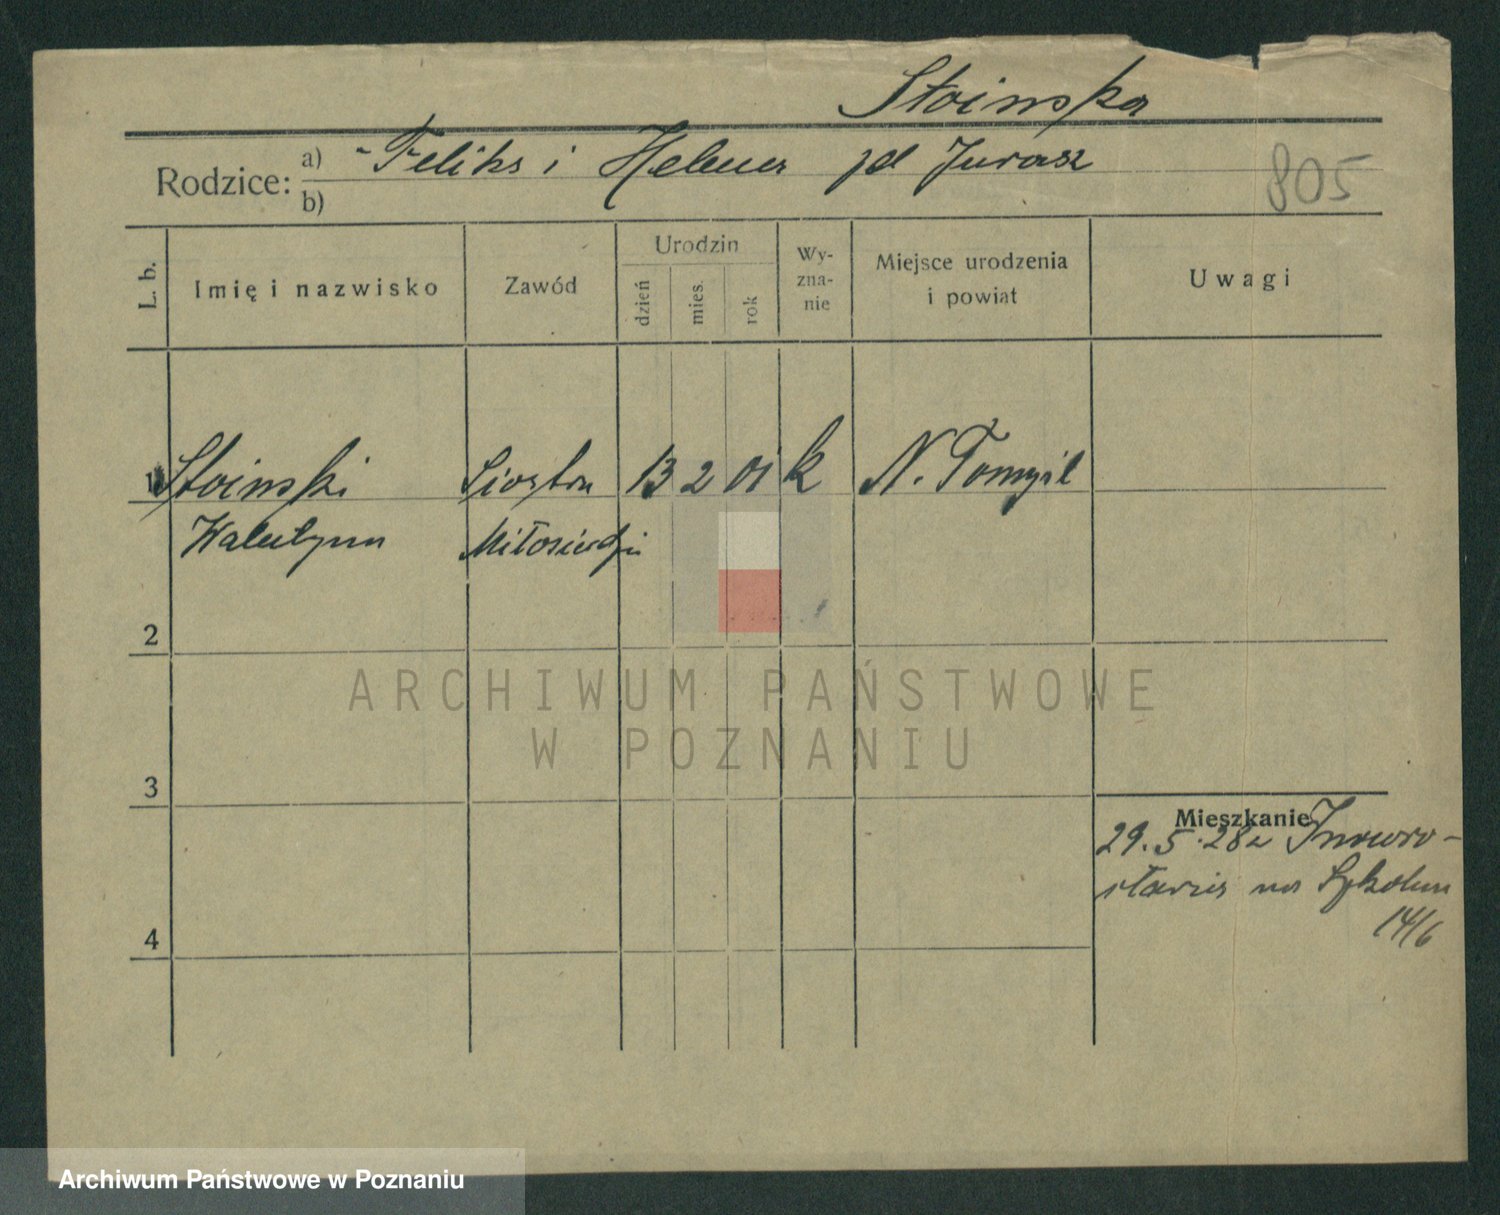 Stoinska
Rodzice: a) Feliks i Helena zd Jurasz
b)
805
L. b.
Imię i nazwisko
Zawód
Urodzin
dzień
mies.
rok
Wy-
zna-
nie
Miejsce urodzenia
i powiat
Uwagi
1 Stoinski Siostra 13 2 01 k N. Tomyśl
Walentyna Miłosierdzia
2
3
4
Mieszkanie
29.5.28 z Inowro-
cławia na
14/6
ARCHIWUM PAŃSTWOWE
W POZNANIU
Archiwum Państwowe w Poznaniu